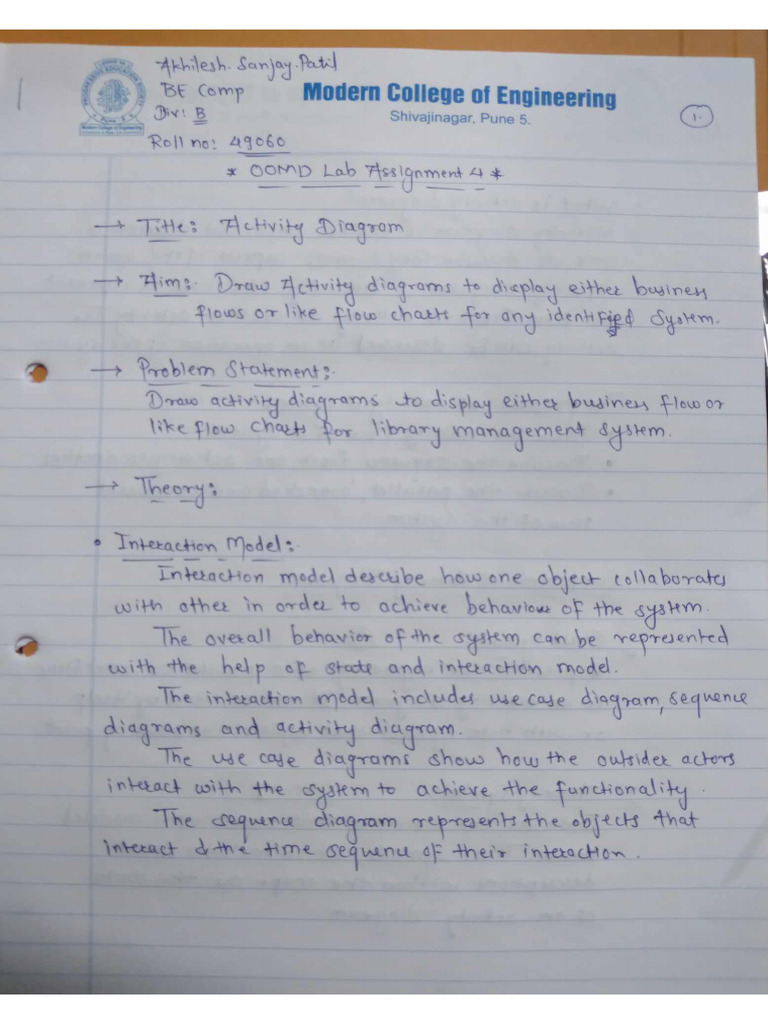 Akhilesh. Sanjay. Patil
BE Comp
Modern College of Engineering
Div: B
Shivajinagar, Pune 5.
1.
Roll no: 49060
* OOMD Lab Assignment 4 *
→ Title: Activity Diagram
→ Aim: Draw Activity diagrams to display either business
flows or like flow charts for any identified System.
→ Problem Statement:
Draw activity diagrams to display either business flow or
like flow charts for library management system.
→ Theory:
• Interaction Model:
Interaction model describe how one object collaborates
with other in order to achieve behaviour of the system.
The overall behavior of the system can be represented
with the help of state and interaction model.
The interaction model includes use case diagram, sequence
diagrams and activity diagram.
The use case diagrams show how the outsider actors
interact with the system to achieve the functionality.
The sequence diagram represents the objects that
interact & the time sequence of their interaction.